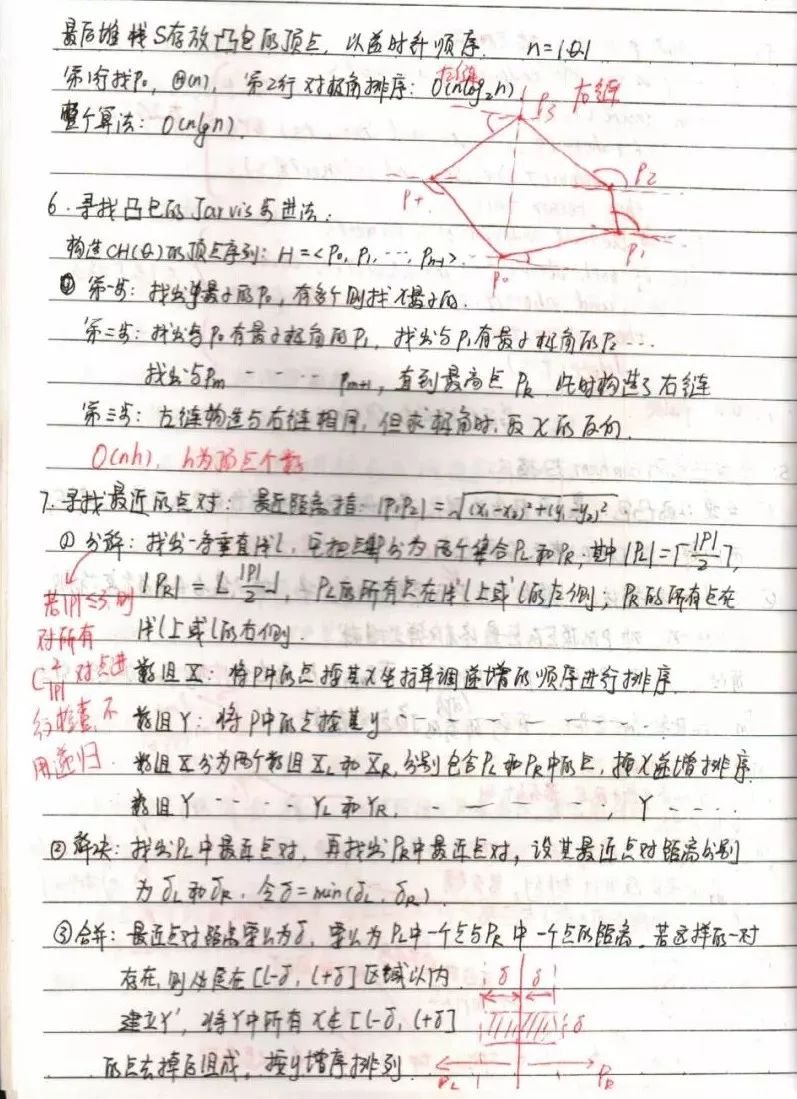 最后堆栈S存放凸包的顶点，以逆时针顺序. n=|Q|
第1行找P₀，Θ(n)，第2行对极角排序：O(nlog₂n)
整个算法：O(nlgn).
左链
右链
P₃
P₂
P₄
P₁
P₀
6.寻找凸包的Jarvis步进法：
构造CH(Q)的顶点序列：H=<P₀, P₁, …, Pₕ₋₁>.
① 第一步：找出y最小的P₀，有多个则找x最小的.
第二步：找出与P₀有最小极角的P₁，找出与P₁有最小极角的P₂…
找出与Pm - - - - Pm+1，直到最高点Pk. 此时构造了右链
第三步：左链构造与右链相同，但求极角时，取X的反向.
O(nh)，h为顶点个数
7.寻找最近的点对：最近距离指：|P₁P₂|=√(x₁-x₂)²+(y₁-y₂)²
① 分解：找出一条垂直线l，它把点集P分为两个集合PL和PR，其中|PL|=⌈|P|/2⌉，
|PR|=⌊|P|/2⌋，PL的所有点在线l上或l的左侧；PR的所有点在
线l上或l的右侧.
若|P|≤3则
对所有
C²|P|对点进
行检查，不
用递归.
数组X：将P中的点按其X坐标单调递增的顺序进行排序.
数组Y：将P中的点按其y - - - - - - -
数组X分为两个数组XL和XR，分别包含PL和PR中的点，按X递增排序.
数组Y - - - - YL和YR， - - - -，Y - - - -.
② 解决：找出PL中最近点对，再找出PR中最近点对，设其最近点对距离分别
为δL和δR，令δ=min(δL, δR).
③ 合并：最近点对距离要么为δ，要么为PL中一个点与PR中一个点的距离. 若这样的一对
存在，则必是在[l-δ, l+δ]区域以内.
建立Y'，将Y中所有X∉[l-δ, l+δ]
的点去掉后组成，按y增序排列.
δ δ
δ
PL PR